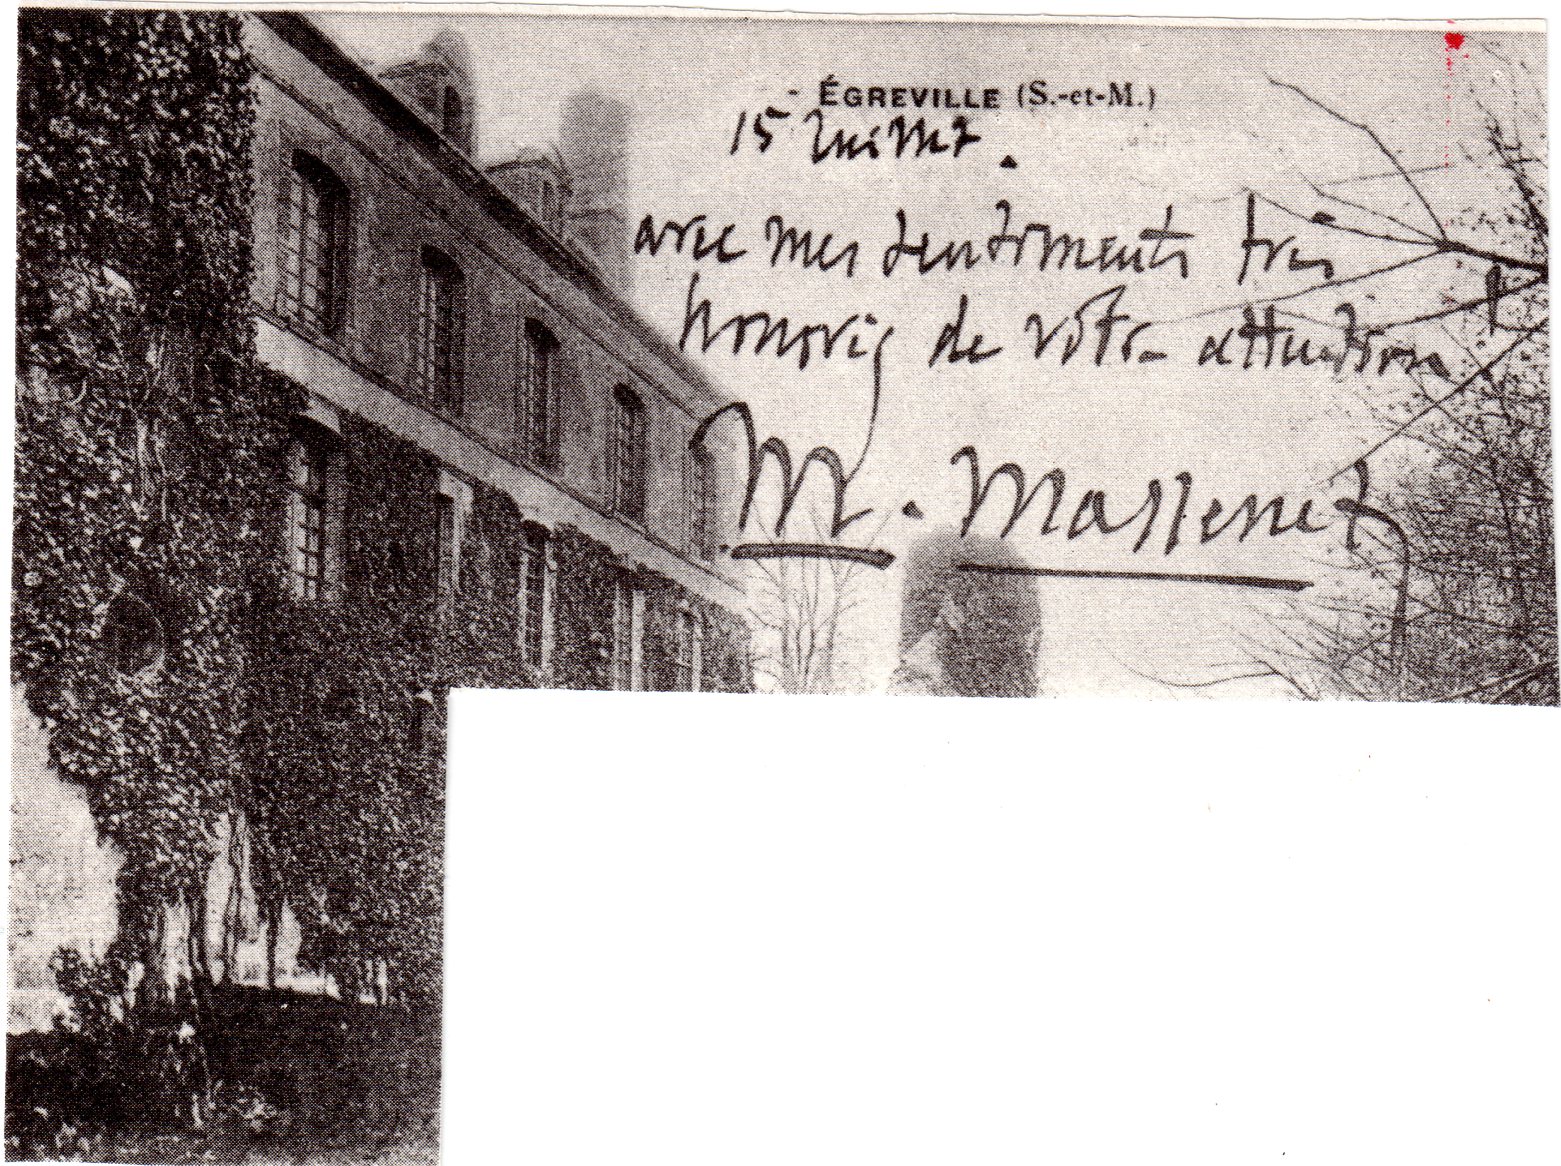 - ÉGREVILLE (S.-et-M.)
15 Juillet.
avec mes sentiments très
honorés de votre attention
M. Massenet